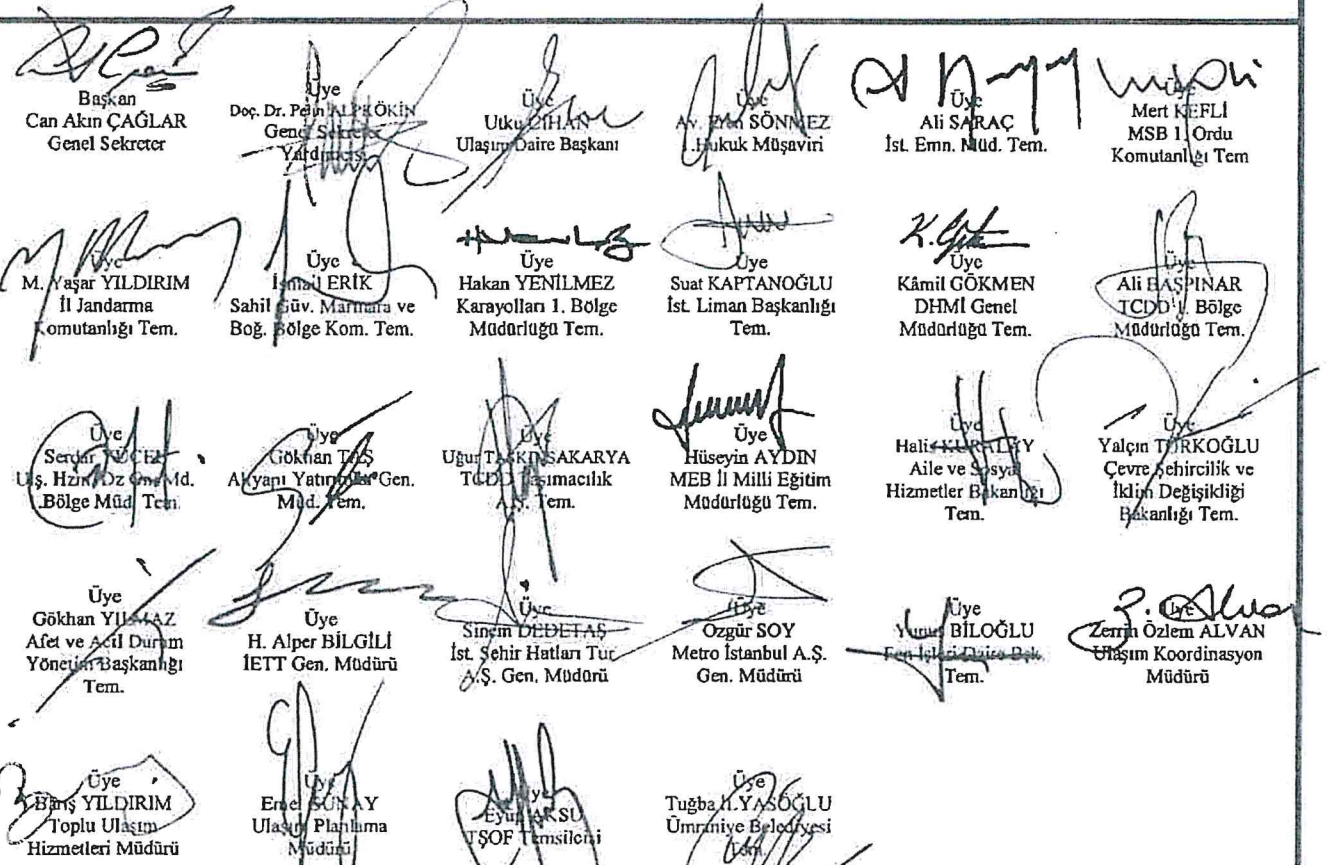 Başkan
Can Akın ÇAĞLAR
Genel Sekreter
Üye
Doç. Dr. Pelin ALPKÖKİN
Genel Sekreter
Yardımcısı
Üye
Utku CİHAN
Ulaşım Daire Başkanı
Üye
Av. Eren SÖNMEZ
1.Hukuk Müşaviri
Üye
Ali SARAÇ
İst. Emn. Müd. Tem.
Üye
Mert KEFLİ
MSB 1. Ordu
Komutanlığı Tem
Üye
M. Yaşar YILDIRIM
İl Jandarma
Komutanlığı Tem.
Üye
İsmail ERİK
Sahil Güv. Marmara ve
Boğ. Bölge Kom. Tem.
Üye
Hakan YENİLMEZ
Karayolları 1. Bölge
Müdürlüğü Tem.
Üye
Suat KAPTANOĞLU
İst. Liman Başkanlığı
Tem.
Üye
Kâmil GÖKMEN
DHMİ Genel
Müdürlüğü Tem.
Üye
Ali BAŞPINAR
TCDD 1. Bölge
Müdürlüğü Tem.
Üye
Serdar YÜCEL
Ulş. Hzm. Dz Gn. Md.
Bölge Müd. Tem.
Üye
Gökhan TAŞ
Altyapı Yatırımlar Gen.
Müd. Tem.
Üye
Uğur TAŞKINSAKARYA
TCDD Taşımacılık
A.Ş. Tem.
Üye
Hüseyin AYDIN
MEB İl Milli Eğitim
Müdürlüğü Tem.
Üye
Halil
Aile ve Sosyal
Hizmetler Bakanlığı
Tem.
Üye
Yalçın TÜRKOĞLU
Çevre Şehircilik ve
İklim Değişikliği
Bakanlığı Tem.
Üye
Gökhan YILMAZ
Afet ve Acil Durum
Yönetim Başkanlığı
Tem.
Üye
H. Alper BİLGİLİ
İETT Gen. Müdürü
Üye
Sinem DEDETAŞ
İst. Şehir Hatları Tur
A.Ş. Gen. Müdürü
Üye
Özgür SOY
Metro İstanbul A.Ş.
Gen. Müdürü
Üye
Yunus BİLOĞLU
Fen İşleri Daire Bşk.
Tem.
Üye
Zerrin Özlem ALVAN
Ulaşım Koordinasyon
Müdürü
Üye
Barış YILDIRIM
Toplu Ulaşım
Hizmetleri Müdürü
Üye
Emel SUNAY
Ulaşım Planlama
Müdürü
Üye
Eyüp AKSU
TŞOF Temsilcisi
Üye
Tuğba H.YASOĞLU
Ümraniye Belediyesi
Tem.